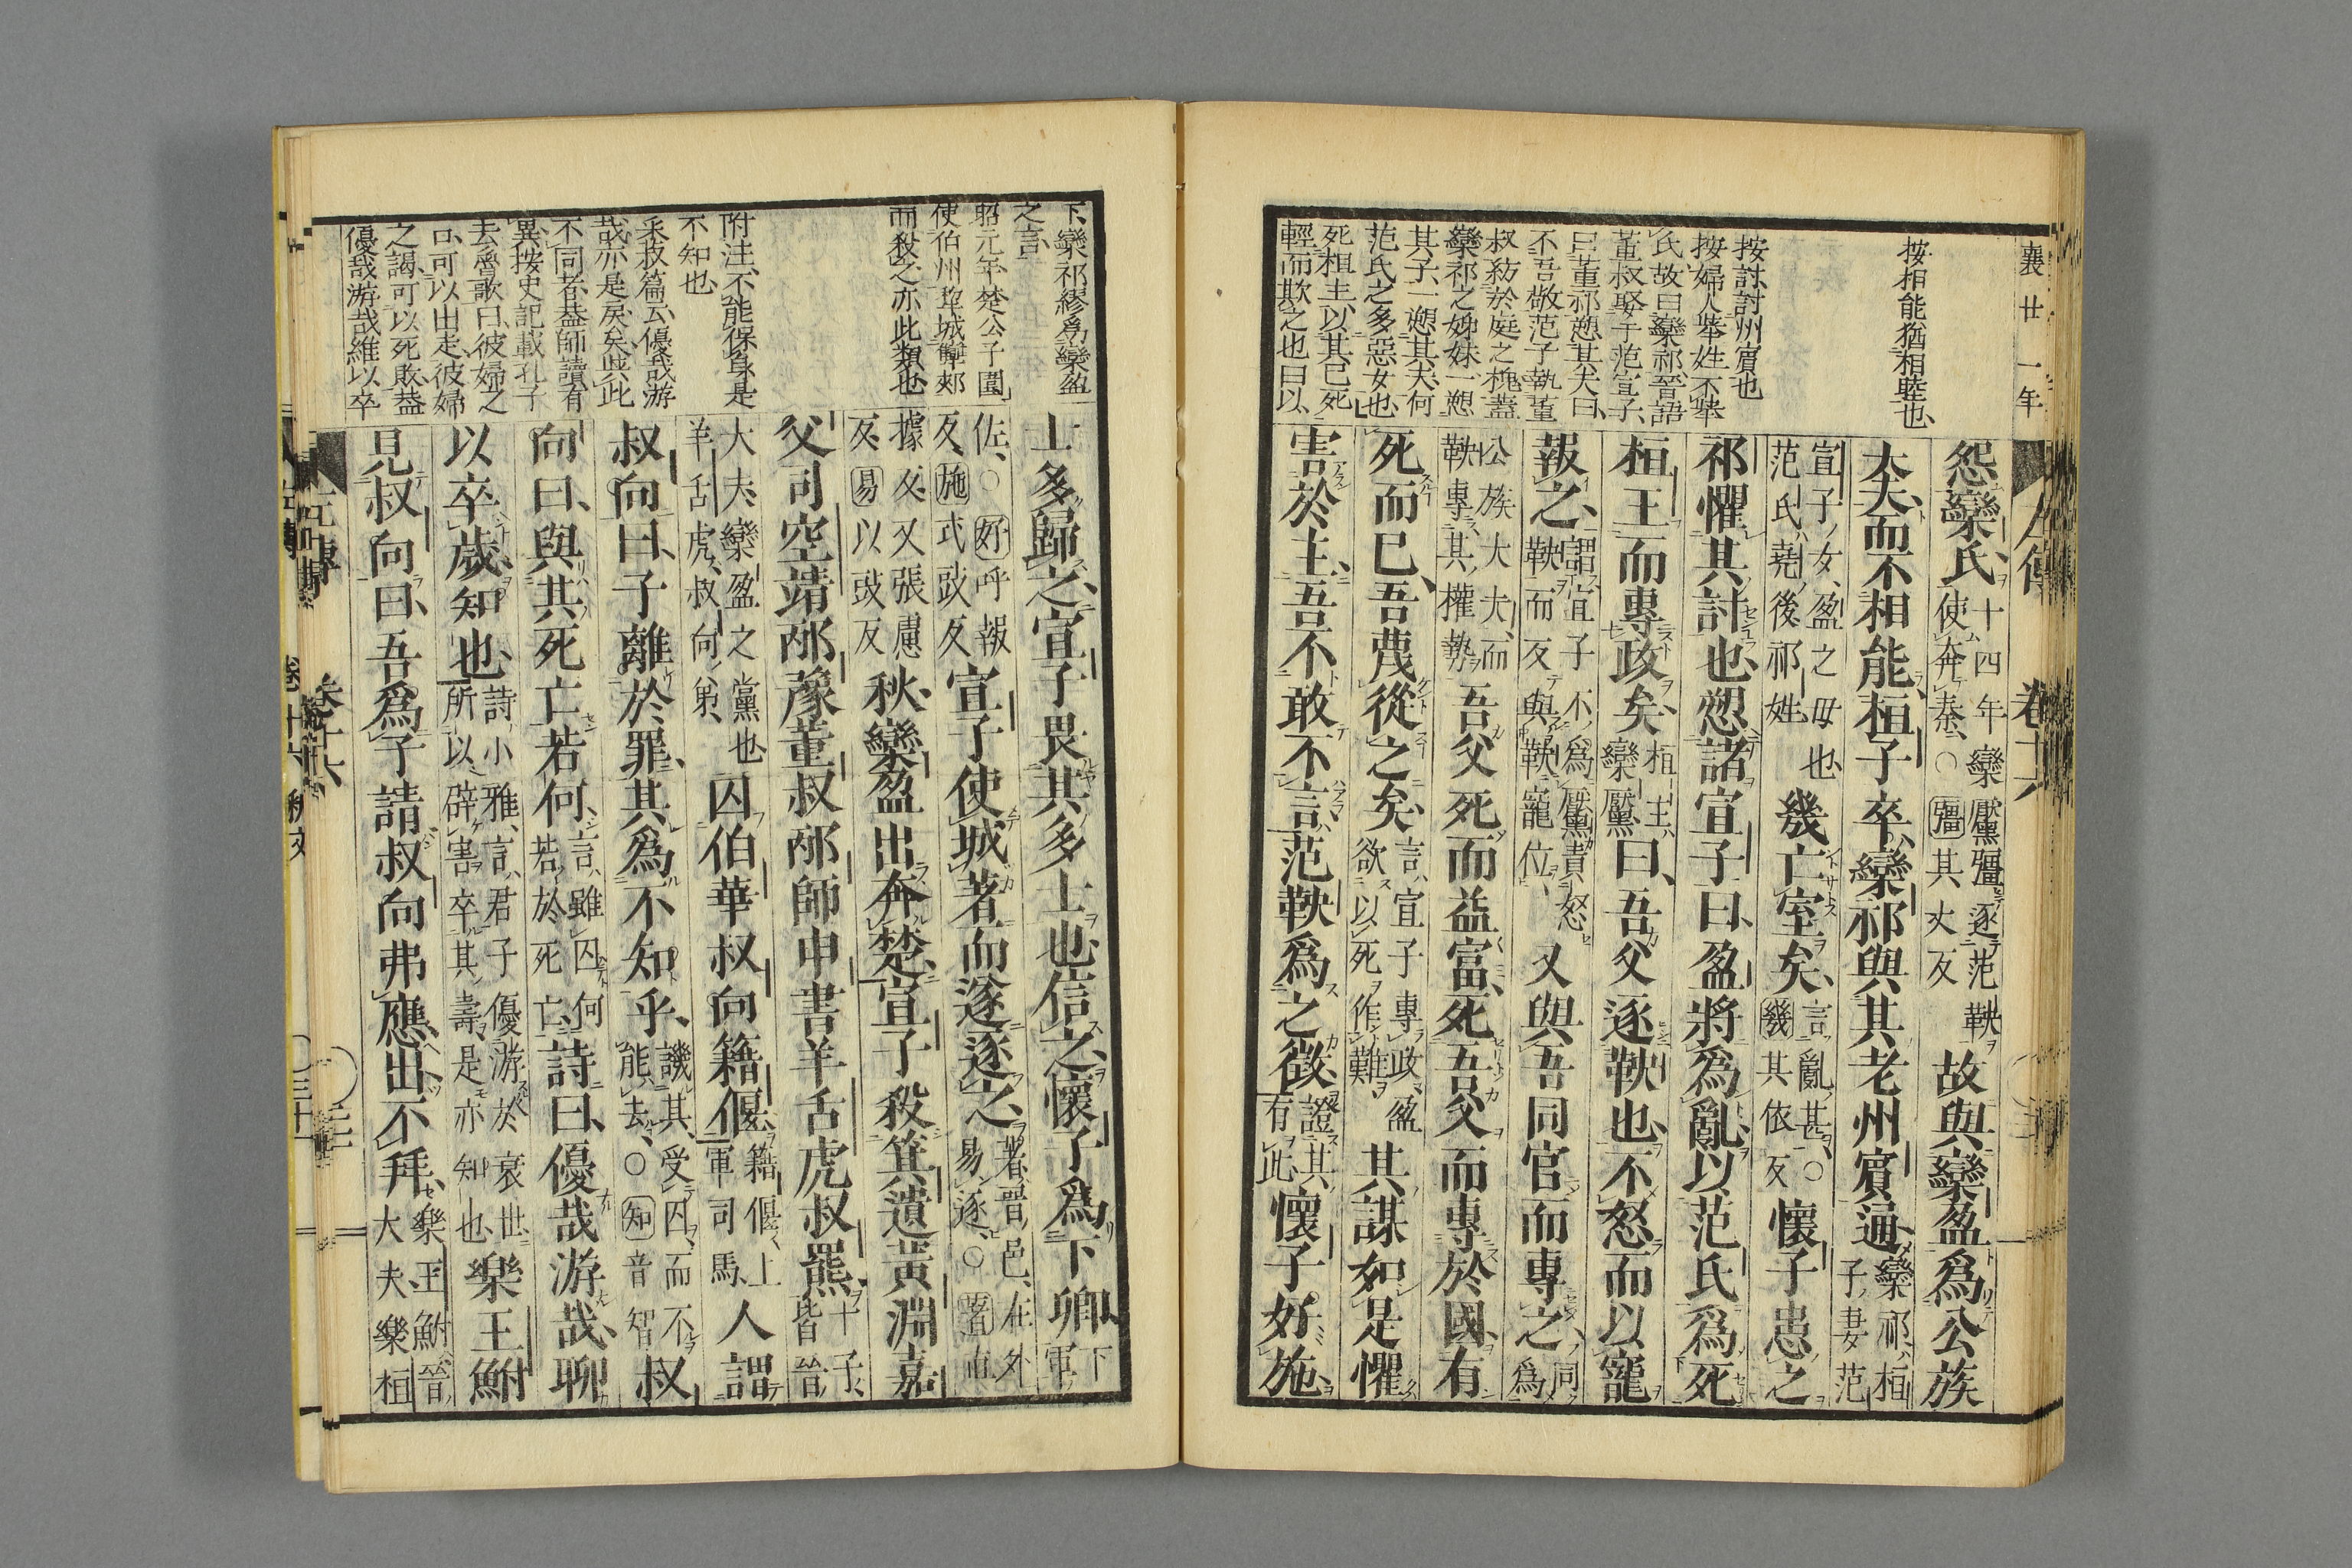 襄廿一年
按相能猶相睦也
按討討州賓也
按婦人舉姓不舉
氏故曰欒祁晉語
董叔娶于范宣子
曰董祁愬其夫曰
不吾敬范子執董
叔紡於庭之槐蓋
欒祁之姊妹一愬
其子一愬其夫何
范氏之多惡女也
死桓主以其已死
輕而欺之也曰以
怨欒氏十四年欒黶彊逐范鞅使奔秦○彊其丈反故與欒盈爲公族
大夫而不相能桓子卒欒祁與其老州賓通欒祁桓子妻范
宣子女盈之母也范氏堯後祁姓幾亡室矣言亂甚○幾其依反懷子患之
祁懼其討也愬諸宣子曰盈將爲亂以范氏爲死
桓主而專政矣桓主欒黶曰吾父逐鞅也不怒而以寵
報之謂宣子不爲黶責怒鞅而反與鞅寵位又與吾同官而專之同爲
公族大夫而鞅專其權勢吾父死而益富死吾父而專於國有
死而已吾蔑從之矣言宣子專政盈欲以死作難其謀如是懼
害於主吾不敢不言范鞅爲之徵證其有此懷子好施
下欒祁繆爲欒盈
之言
昭元年楚公子圍
使伯州犂城犨郟
而殺之亦此類也
附注不能保身是
不知也
釆菽篇云優哉游
哉亦是戾矣與此
不同者蓋師讀有
異按史記載孔子
去魯歌曰彼婦之
口可以出走彼婦
之謁可以死敗蓋
優哉游哉維以卒
士多歸之宣子畏其多士也信之懷子爲下卿下軍
佐○好呼報反施式豉反宣子使城著而遂逐之著晉邑在外易逐○著直
據反又張慮反易以豉反秋欒盈出奔楚宣子殺箕遺黃淵嘉
父司空靖邴豫董叔邴師申書羊舌虎叔羆十子皆晉
大夫欒盈之黨也羊舌虎叔向弟囚伯華叔向籍偃籍偃上軍司馬人謂
叔向曰子離於罪其爲不知乎譏其受囚而不能去○知音智叔
向曰與其死亡若何言雖囚何若於死亡詩曰優哉游哉聊
以卒歲知也詩小雅言君子優游於衰世所以辟害卒其壽是亦知也樂王鮒
見叔向曰吾爲子請叔向弗應出不拜樂王鮒晉大夫樂桓